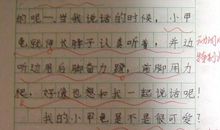 的吧一当我说话的时候，小甲
龟就伸长脖子认真听着，并边
听边用后脚奋力蹬，前脚用力
爬，好像也想和我一起说话呢！
我的小甲龟是不是很可爱？